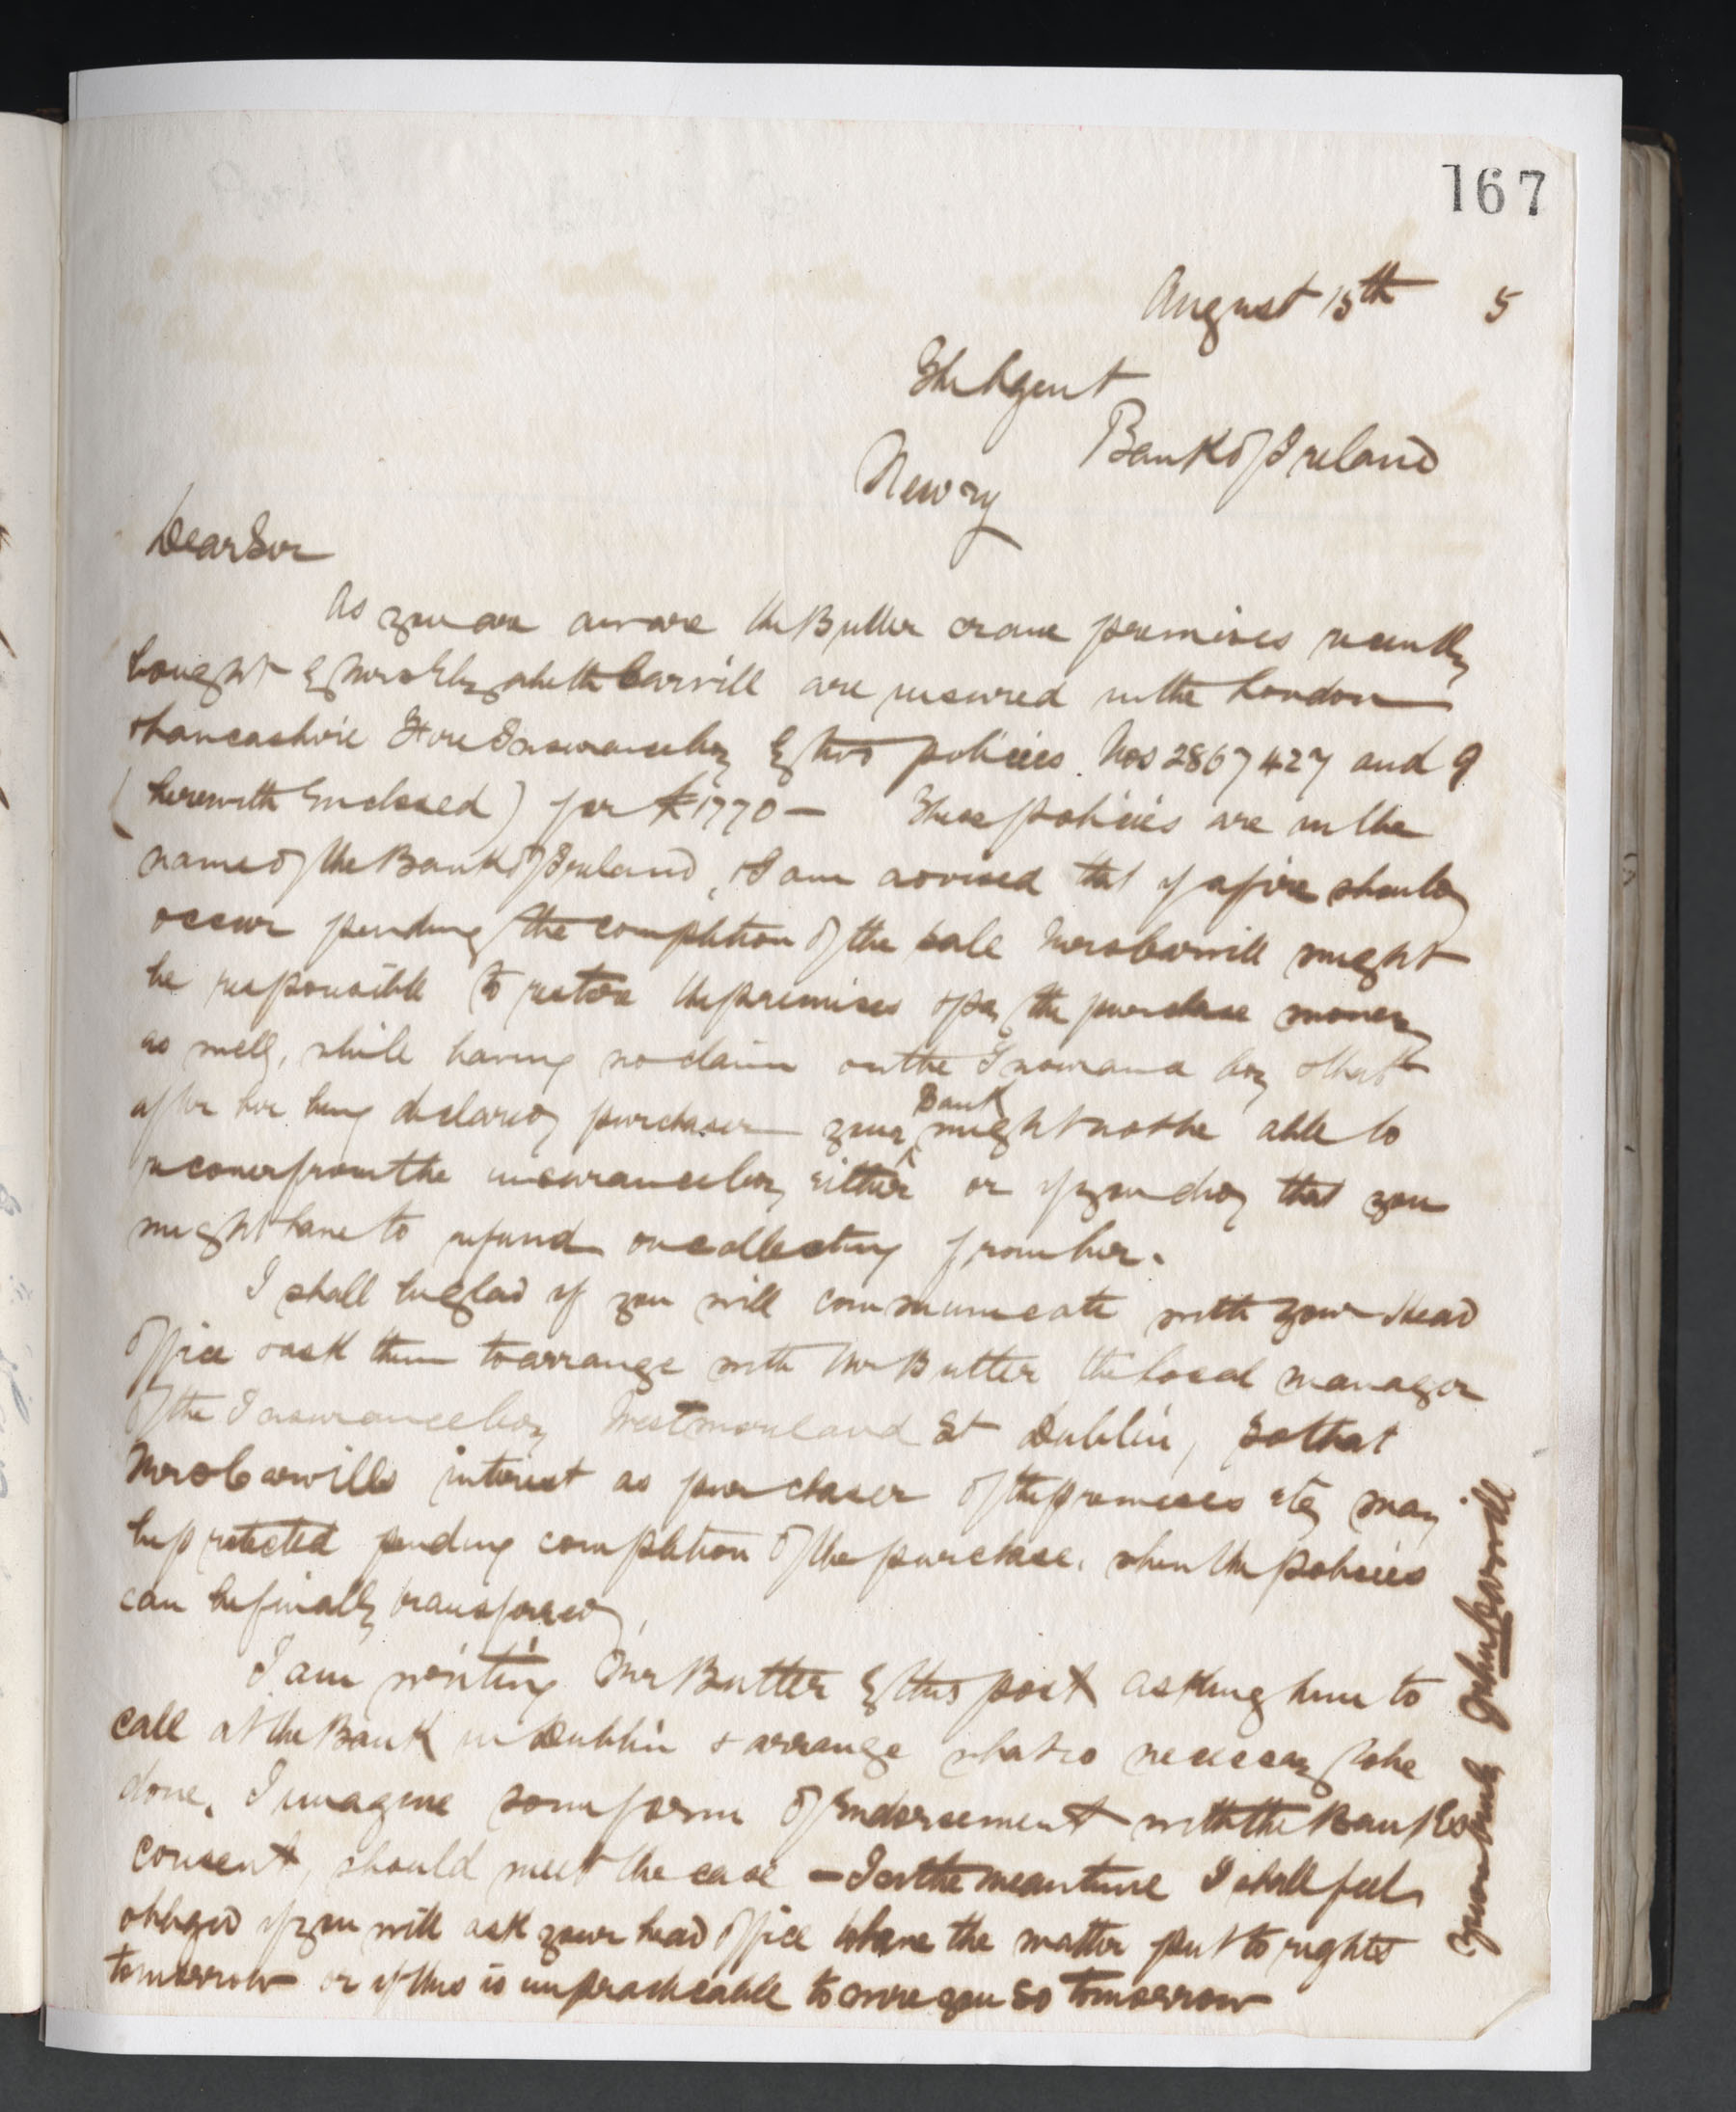 167
August 15th 5
The Agent
Bank of Ireland
Newry
Dear Sir
As you are aware the Butter crane premises recently
bought by Mrs Elizabeth Carvill are insured in the London
& Lancashire Fire Insurance Coy by two policies. Nos 2867427 and 9
(herewith Enclosed) for £1770 — These policies are in the
name of the Bank of Ireland, & I am advised that if a fire should
occur pending the completion of the sale Mrs Carvill might
be responsible to restore the premises & pay the purchase money
as well, while having no claim on the Insurance Coy & that
after her being declared purchaser your Bank might not be able to
recover from the insurance Coy either or if you did that you
might have to refund on collecting from her.
I shall be glad if you will communicate with your Head
Office & ask them to arrange with Mr Butter the local manager
of the Insurance Coy Westmoreland St Dublin, so that
Mrs Carvills interest as purchaser of the premises etc may
be protected pending completion of the purchase. when the policies
can be finally transferred.
I am writing Mr Butter by this post asking him to
call at the Bank in Dublin & arrange what is necessary to be
done. I imagine some form of Endorsement with the Banks
consent, should meet the case — In the meantime I shall feel
obliged if you will ask your head office to have the matter put to rights
tomorrow or if this is unpracticable to advise you so tomorrow
Yours truly John Carvill